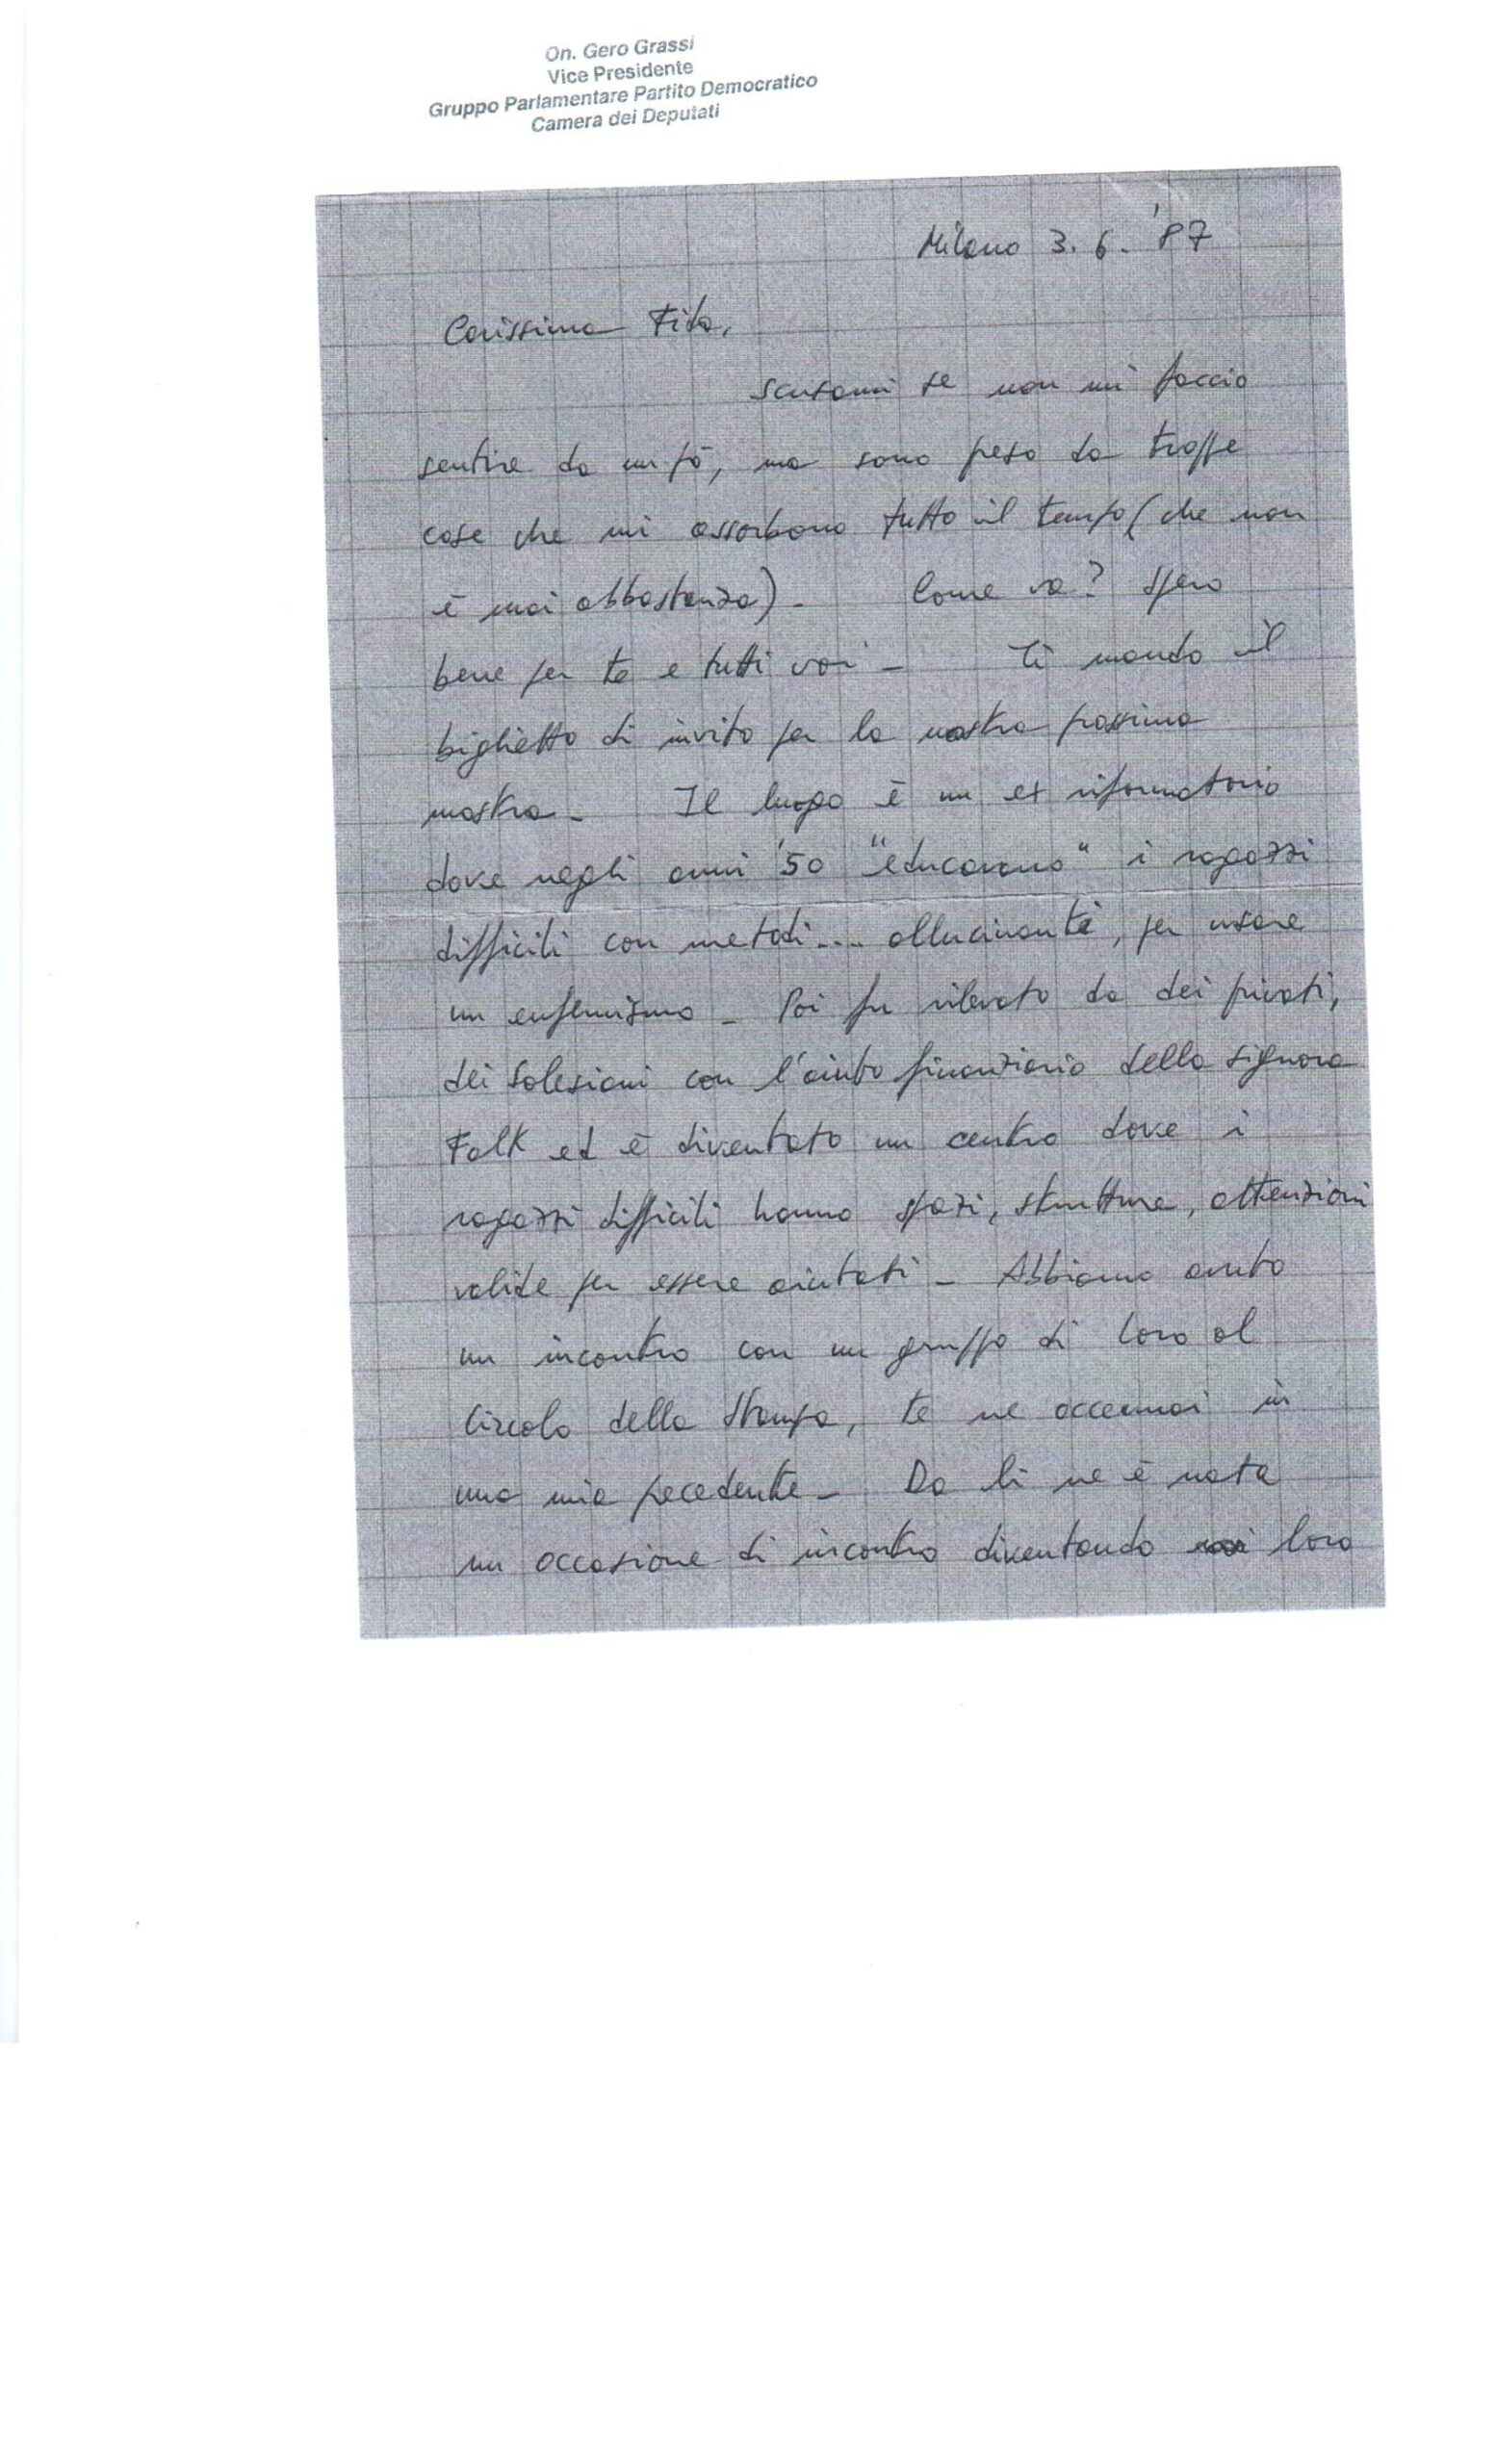 On. Gero Grassi
Vice Presidente
Gruppo Parlamentare Partito Democratico
Camera dei Deputati
Milano 3. 6. '87
Carissima Fida,
scusami se non mi faccio
sentire da un pò, ma sono presa da troppe
cose che mi assorbono tutto il tempo (che non
è mai abbastanza) - Come va? Spero
bene per te e tutti voi - Ti mando il
biglietto di invito per la nostra prossima
mostra - Il luogo è un ex riformatorio
dove negli anni '50 "educavano" i ragazzi
difficili con metodi.... allucinanti, per usare
un eufemismo - Poi fu rilevato da dei privati,
dei Salesiani con l'aiuto finanziario della signora
Falk ed è diventato un centro dove i
ragazzi difficili hanno spazi, strutture, attenzioni
valide per essere aiutati - Abbiamo avuto
un incontro con un gruppo di loro al
Circolo della Stampa, te ne accennai in
una mia precedente - Da lì ne è nata
un occasione di incontro diventando loro